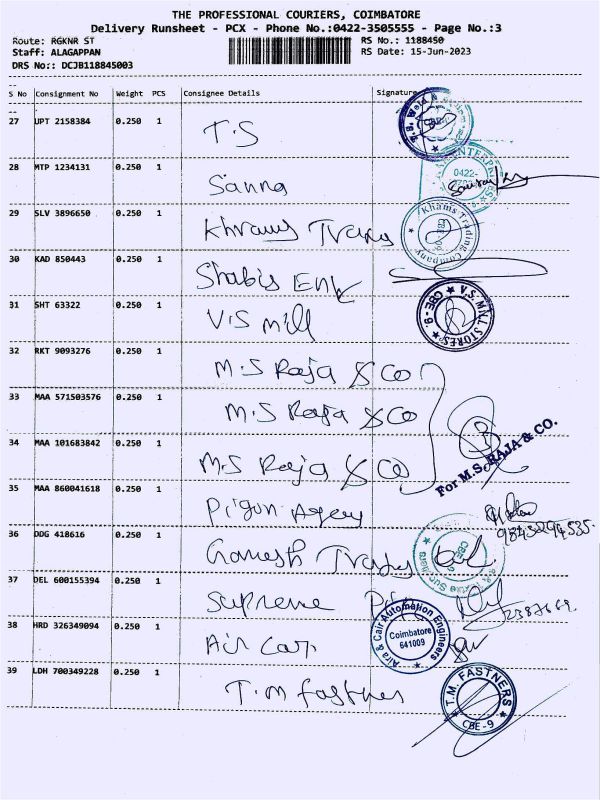 THE PROFESSIONAL COURIERS, COIMBATORE
Delivery Runsheet - PCX - Phone No.:0422-3505555 - Page No.:3
Route: RGKNR ST
RS No.: 1188450
Staff: ALAGAPPAN
RS Date: 15-Jun-2023
DRS No:: DCJB118845003
S No Consignment No Weight PCS Consignee Details Signature
27 UPT 2158384 0.250 1 T.S
28 MTP 1234131 0.250 1 Sanna
0422-
29 SLV 3896650 0.250 1 Khrams Trang
Khams Trading Company
30 KAD 850443 0.250 1 Shabis Ent
31 SHT 63322 0.250 1 V.S mill
V.S. MILL STORES CBE-9
32 RKT 9093276 0.250 1 M.S Raja & Co
33 MAA 571503576 0.250 1 M.S Raja & Co
34 MAA 101683842 0.250 1 M.S Raja & Co
For M.S. RAJA & CO.
35 MAA 860041618 0.250 1 Pigun Agency
9843294535.
36 DDG 418616 0.250 1 Ganesh
37 DEL 600155394 0.250 1 Supreme
38 HRD 326349094 0.250 1 Air Cair
Aira & Cair Automation Engineers
Coimbatore
641009
39 LDH 700349228 0.250 1 T.m fastner
T.M. FASTNERS
CBE-9